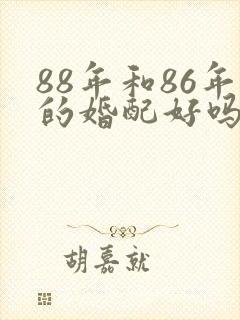 88年和86年
的婚配好吗
胡嘉就